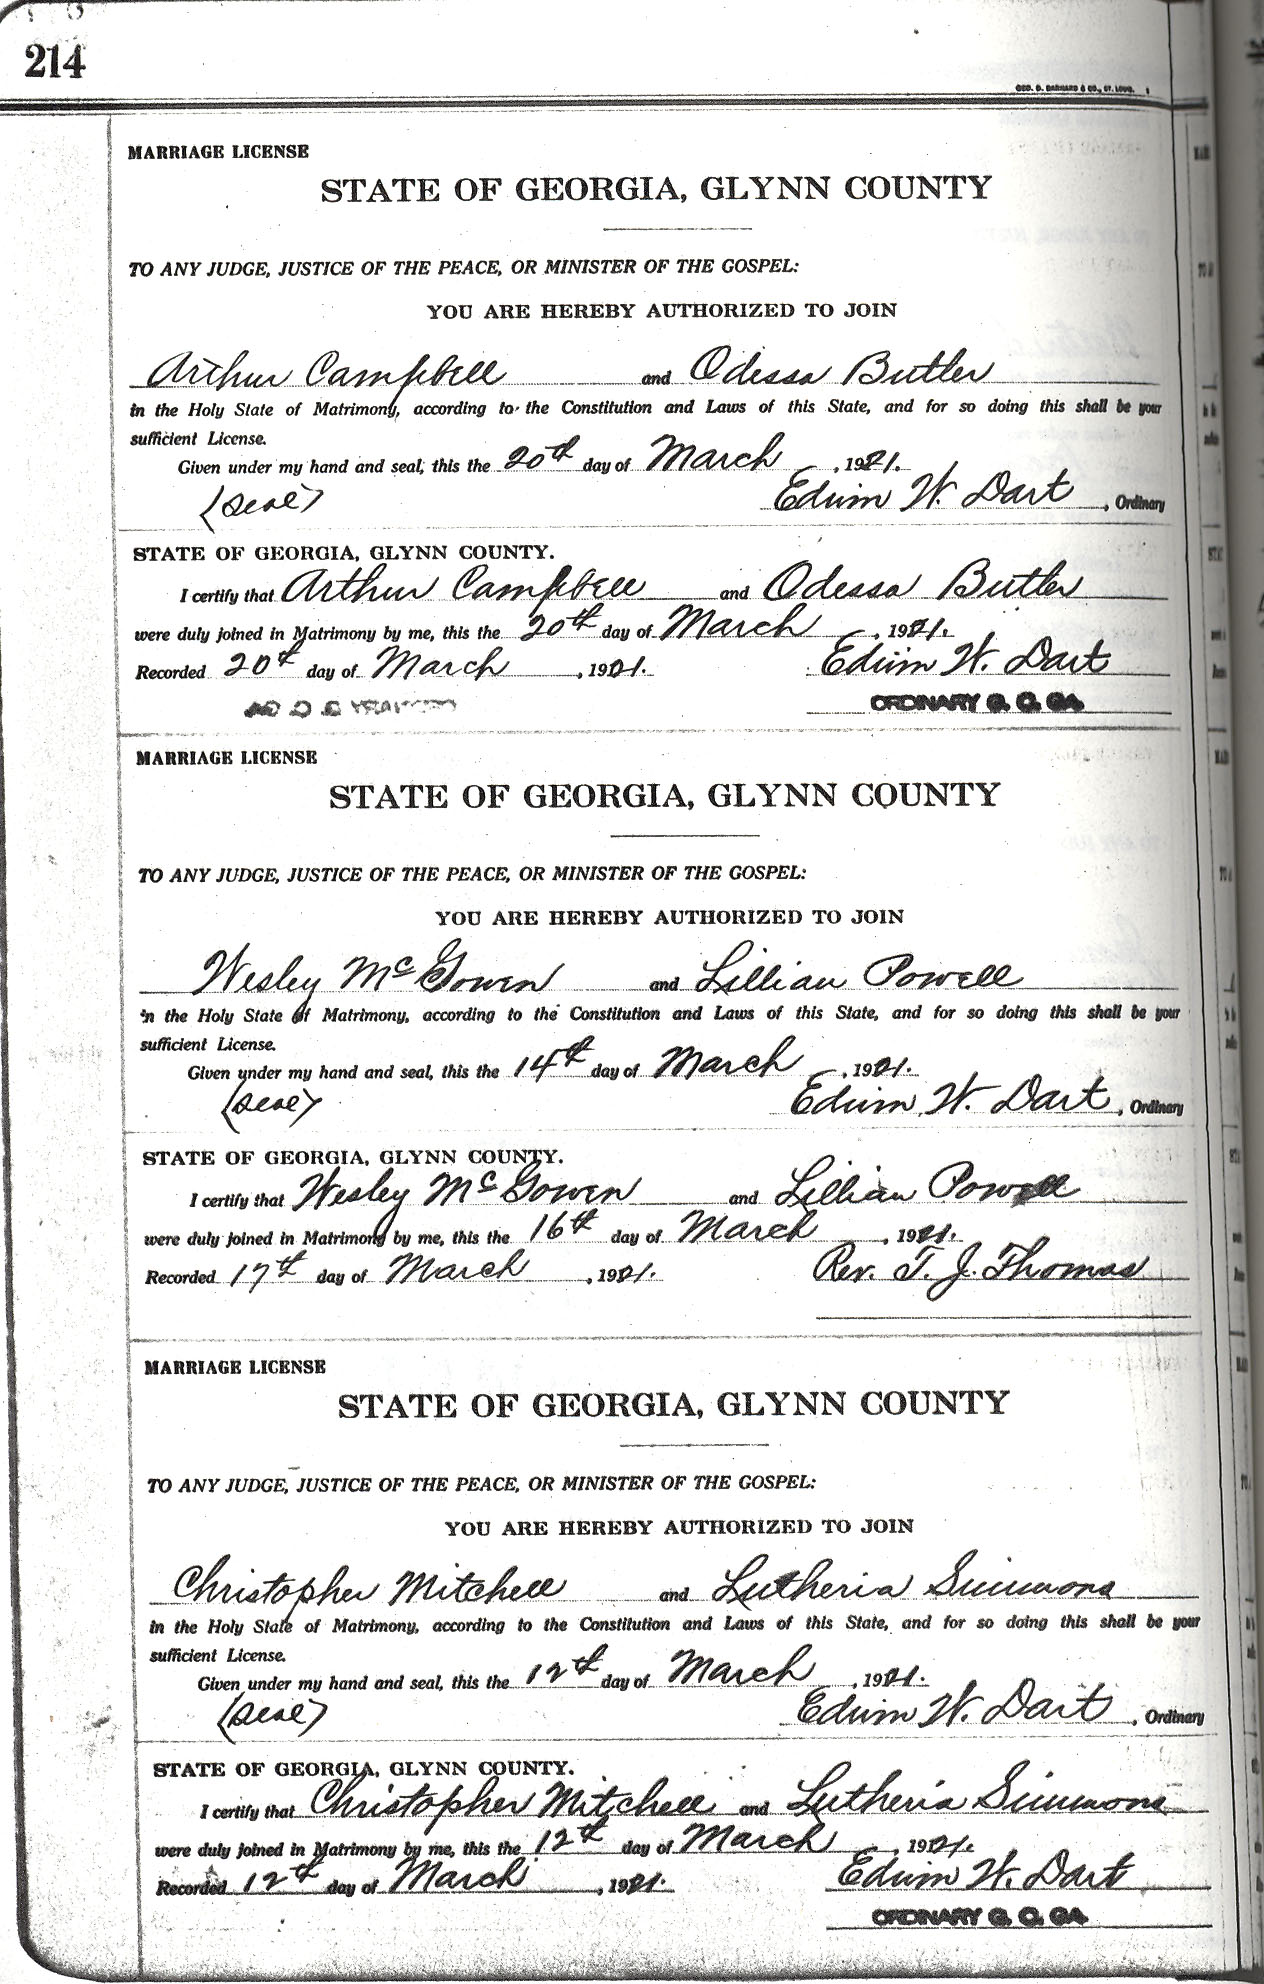 214
GEO. D. BARNARD & CO., ST. LOUIS.
MARRIAGE LICENSE
STATE OF GEORGIA, GLYNN COUNTY
TO ANY JUDGE, JUSTICE OF THE PEACE, OR MINISTER OF THE GOSPEL:
YOU ARE HEREBY AUTHORIZED TO JOIN
Arthur Campbell and Odessa Butler
in the Holy State of Matrimony, according to the Constitution and Laws of this State, and for so doing this shall be your
sufficient License.
Given under my hand and seal, this the 20th day of March, 1921.
(Seal) Edwin W. Dart, Ordinary
STATE OF GEORGIA, GLYNN COUNTY.
I certify that Arthur Campbell and Odessa Butler
were duly joined in Matrimony by me, this the 20th day of March, 1921.
Recorded 20th day of March, 1921. Edwin W. Dart
ORDINARY G. C. GA.
MARRIAGE LICENSE
STATE OF GEORGIA, GLYNN COUNTY
TO ANY JUDGE, JUSTICE OF THE PEACE, OR MINISTER OF THE GOSPEL:
YOU ARE HEREBY AUTHORIZED TO JOIN
Wesley McGowen and Lillian Powell
in the Holy State of Matrimony, according to the Constitution and Laws of this State, and for so doing this shall be your
sufficient License.
Given under my hand and seal, this the 14th day of March, 1921.
(Seal) Edwin W. Dart, Ordinary
STATE OF GEORGIA, GLYNN COUNTY.
I certify that Wesley McGowen and Lillian Powell
were duly joined in Matrimony by me, this the 16th day of March, 1921.
Recorded 17th day of March, 1921. Rev. T. J. Thomas
MARRIAGE LICENSE
STATE OF GEORGIA, GLYNN COUNTY
TO ANY JUDGE, JUSTICE OF THE PEACE, OR MINISTER OF THE GOSPEL:
YOU ARE HEREBY AUTHORIZED TO JOIN
Christopher Mitchell and Lutheria Simmons
in the Holy State of Matrimony, according to the Constitution and Laws of this State, and for so doing this shall be your
sufficient License.
Given under my hand and seal, this the 12th day of March, 1921.
(Seal) Edwin W. Dart, Ordinary
STATE OF GEORGIA, GLYNN COUNTY.
I certify that Christopher Mitchell and Lutheria Simmons
were duly joined in Matrimony by me, this the 12th day of March, 1921.
Recorded 12th day of March, 1921. Edwin W. Dart
ORDINARY G. C. GA.